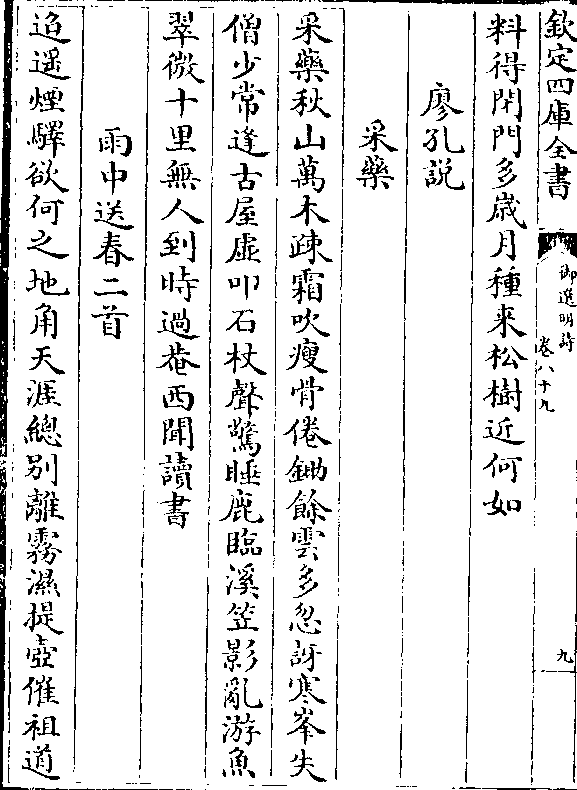 欽定四庫全書
御選明詩
卷八十九
九
料得閉門多歳月種来松樹近何如
廖孔説
采藥
采藥秋山萬木疎霜吹瘦骨倦鋤餘雲多忽訝寒峯失
僧少常逢古屋虚叩石杖聲驚睡鹿臨溪笠影亂游魚
翠微十里無人到時過菴西聞讀書
雨中送春二首
迢遥煙驛欲何之地角天涯總别離霧濕提壺催祖道